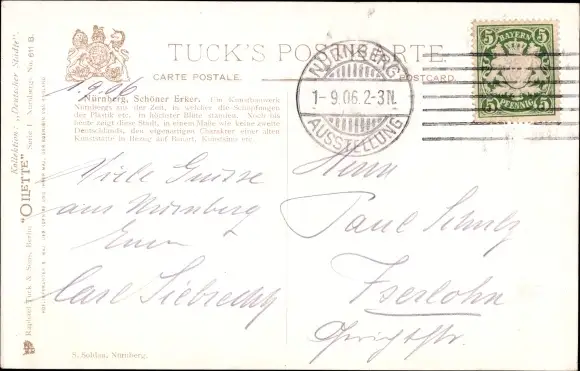 TUCK'S POSTKARTE.
CARTE POSTALE.
POSTCARD.
NÜRNBERG
1-9.06.2-3N.
AUSSTELLUNG
5 BAYERN 5
5 PFENNIG 5
1.9.06
Nürnberg, Schöner Erker. Ein Kunstzentrum
Nürnbergs aus der Zeit, in welcher die Schöpfungen
der Plastik etc. in höchster Blüte standen. Noch bis
heute zeigt diese Stadt, in einem Maße wie keine zweite
Deutschlands, den eigenartigen Charakter einer alten
Kunststätte in Bezug auf Bauart, Kunstsinn etc.
Viele Grüsse
aus Nürnberg
Euer
Carl Siebrecht
Herrn
Paul Schulz
Iserlohn
Gerichtstr.
S. Soldan, Nürnberg.
Kollektion: „Deutscher Städte".
Raphael Tuck & Sons, Berlin "OILETTE" Serie Nürnberg No. 611 B.